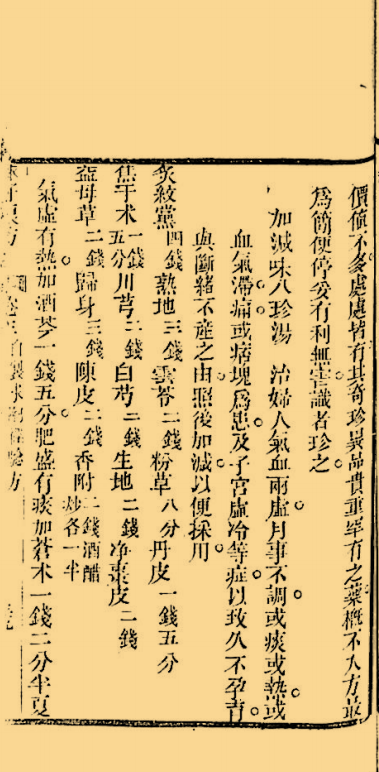 價值不多處處皆有其奇珍異品貴重罕有之藥概不入方最
爲簡便停妥有利無害識者珍之
加減味八珍湯　治婦人氣血兩虛月事不調或痰或熱或
血氣滯痛或痞塊爲患及子宮虛冷等症以致久不孕育
與斷緒不產之由照後加減以便採用
炙紋黨四錢熟地三錢雲苓二錢粉草八分丹皮一錢五分
焦于术一錢五分川芎二錢白芍二錢生地二錢净棗皮二錢
益母草二錢歸身三錢陳皮二錢香附二錢酒醋炒各一半
氣虛有熱加酒芩一錢五分肥盛有痰加蒼术一錢二分半夏